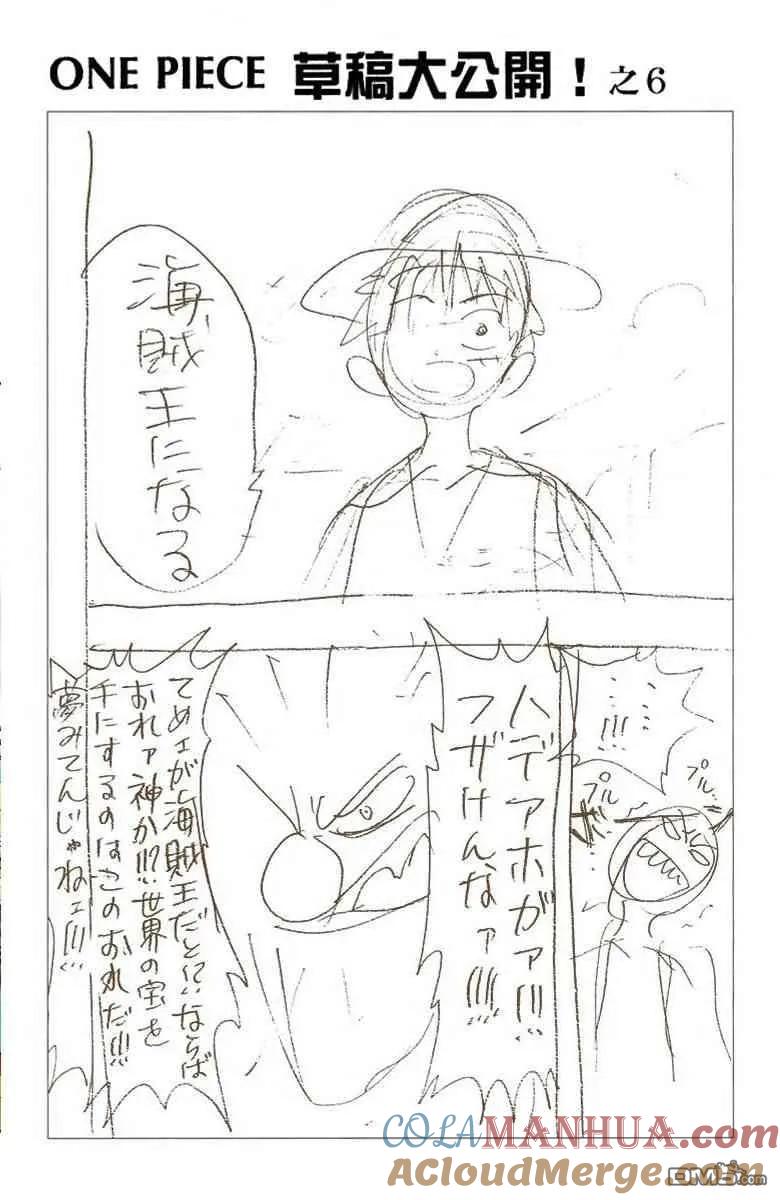 ONE PIECE 草稿大公開！之6
海賊王になる
……!!!
プル
プル
ハデアホがァ!!!
フザけんなァ!!!!
てめェが海賊王だと!?ならば
おれァ神か!!?世界の宝を
手にするのはこのおれだ!!!
夢みてんじゃねェ!!!
COLAMANHUA.com
ACloudMerge.com